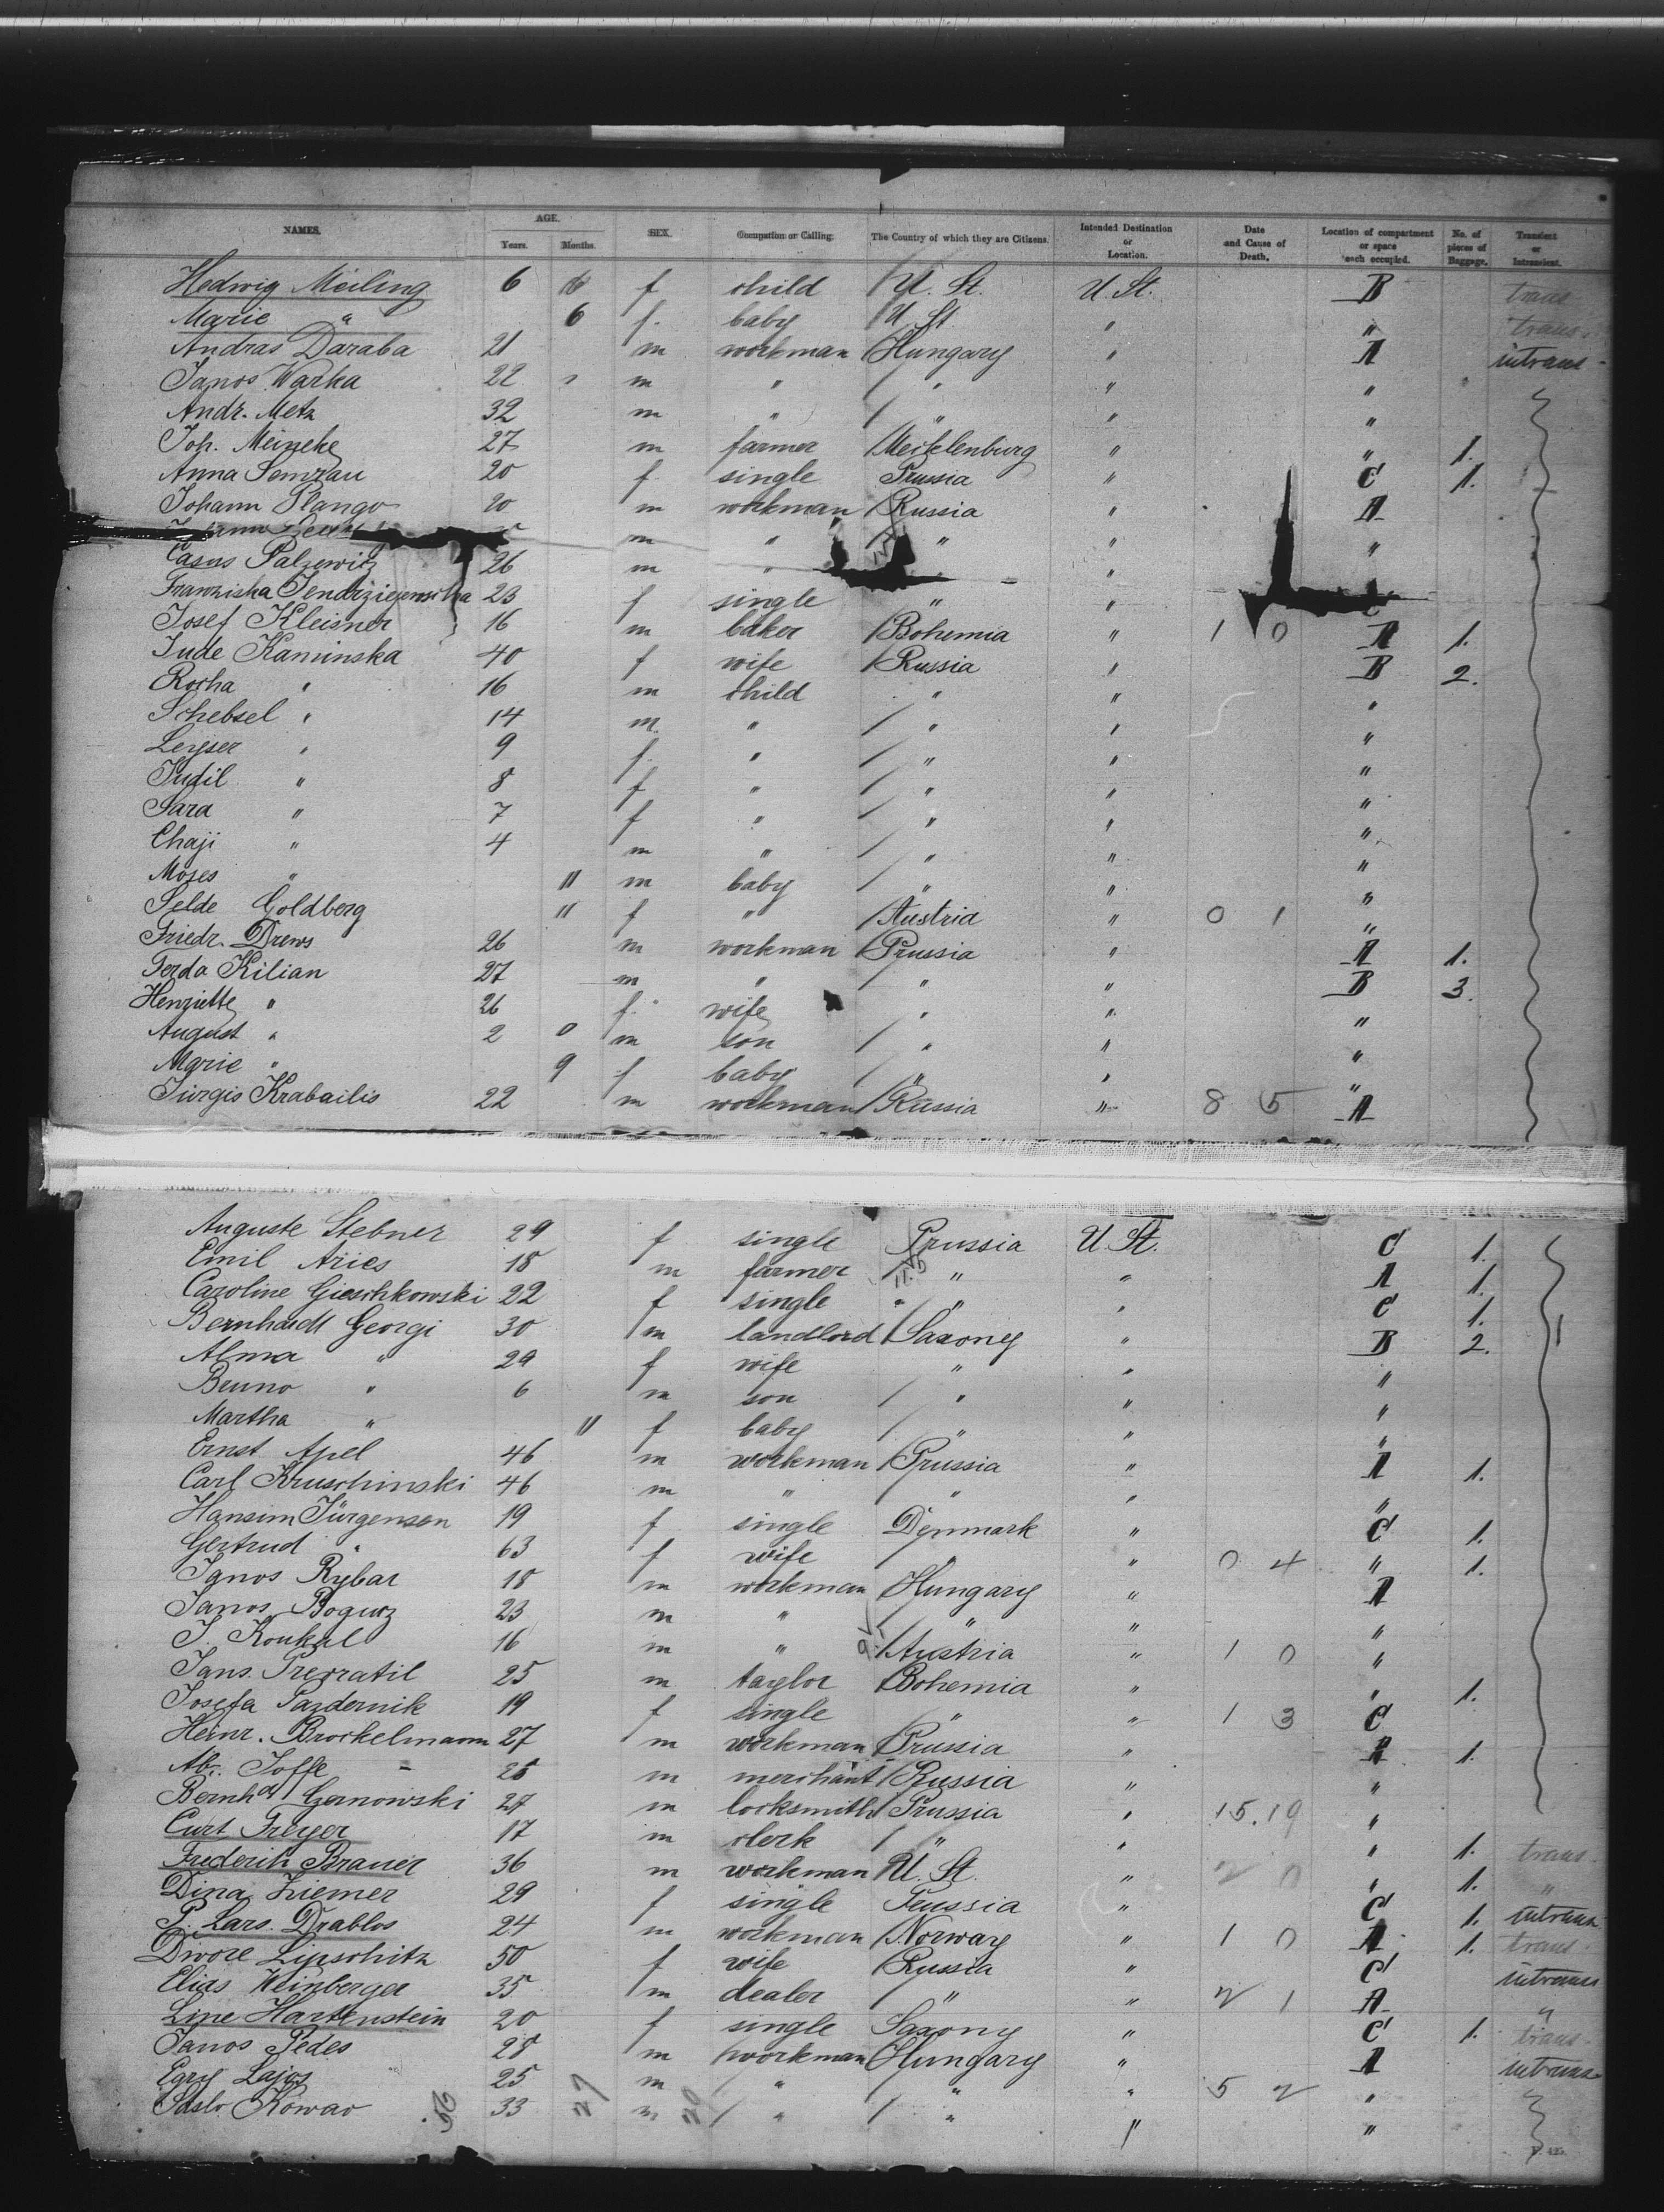 NAMES. AGE. Years. Months. SEX. Occupation or Calling. The Country of which they are Citizens. Intended Destination or Location. Date and Cause of Death. Location of compartment or space each occupied. No. of pieces of Baggage. Transient or Intransient.
Hedwig Meiling 6 f child U. St. U. St. B trans
Marie " 6 f. baby U. St. " " trans.
Andras Daraba 21 m workman Hungary " A intrans
Janos Warha 22 m " " " "
Andr. Metz 32 m " " " "
Joh. Meineke 27 m farmer Mecklenburg " " 1.
Anna Semrau 20 f. single Prussia " C 1.
Johann Plango 20 m workman Russia " A
m " " " "
Casus Palzewitz 26 m " "
Franziska 23 f single " " C
Josef Kleisner 16 m baker Bohemia " 1 0 A 1.
Jude Kaminska 40 f wife Russia " B 2.
Rocha " 16 m child " " "
Schebsel " 14 m. " " " "
Leyser " 9 f. " " " "
Judil " 8 f " " " "
Sara " 7 f " " " "
Chaji " 4 m " " " "
Moses " 11 m baby " " "
Selde Goldberg 11 f " Austria " 0 1 "
Friedr. Drews 26 m workman Prussia " A 1.
Ferda Kilian 27 m " " " B 3.
Henriette " 26 f. wife " " "
August " 2 0 m son " " "
Marie " 9 f baby " " "
Jurgis Krabailis 22 m workman Russia " 8 5 A
Auguste Stebner 29 f single Prussia U. St. C 1.
Emil Aries 18 m farmer " " A 1.
Caroline Gieschkowski 22 f single " " C 1.
Bernhardt Georgi 30 m landlord Saxony " B 2.
Alma " 29 f wife " " "
Bruno " 6 m son " " "
Martha " 11 f baby " " "
Ernst Apel 46 m workman Prussia " A 1.
Carl Kruschinski 46 m " " " "
Hansim Jürgensen 19 f single Denmark " C 1.
Gertrud " 63 f wife " " 0 4 " 1.
Janos Rybar 18 m workman Hungary " A
Janos Bogurz 23 m " " " "
J. Koukal 16 m " Austria " 1 0 "
Jans. Prerratil 25 m taylor Bohemia " " 1.
Josefa Pazdernik 19 f single " " 1 3 C
Heinr. Brockelmann 27 m workman Prussia " A 1.
Ab. Joffe 25 m merchant Russia " "
Bernhd Czernowski 27 m locksmith Prussia " 15.19 "
Curt Freyer 17 m clerk " " " 1. trans.
Frederik Brauer 36 m workman U. St. " 2 0 " 1. "
Dina Ziemer 29 f single Prussia " C 1. intrans
P. Lars. Drablos 24 m workman Norway " 1 0 A 1. trans.
Dwore Lipschitz 50 f wife Russia " C intrans
Elias Weinberger 35 m dealer " " 2 1 A "
Line Hartenstein 20 f single Saxony " C 1. trans.
Janos Pedes 28 m workman Hungary " A intrans
Egry Lajos 25 m " " " 5 2 "
Kowac 33 m " " " "